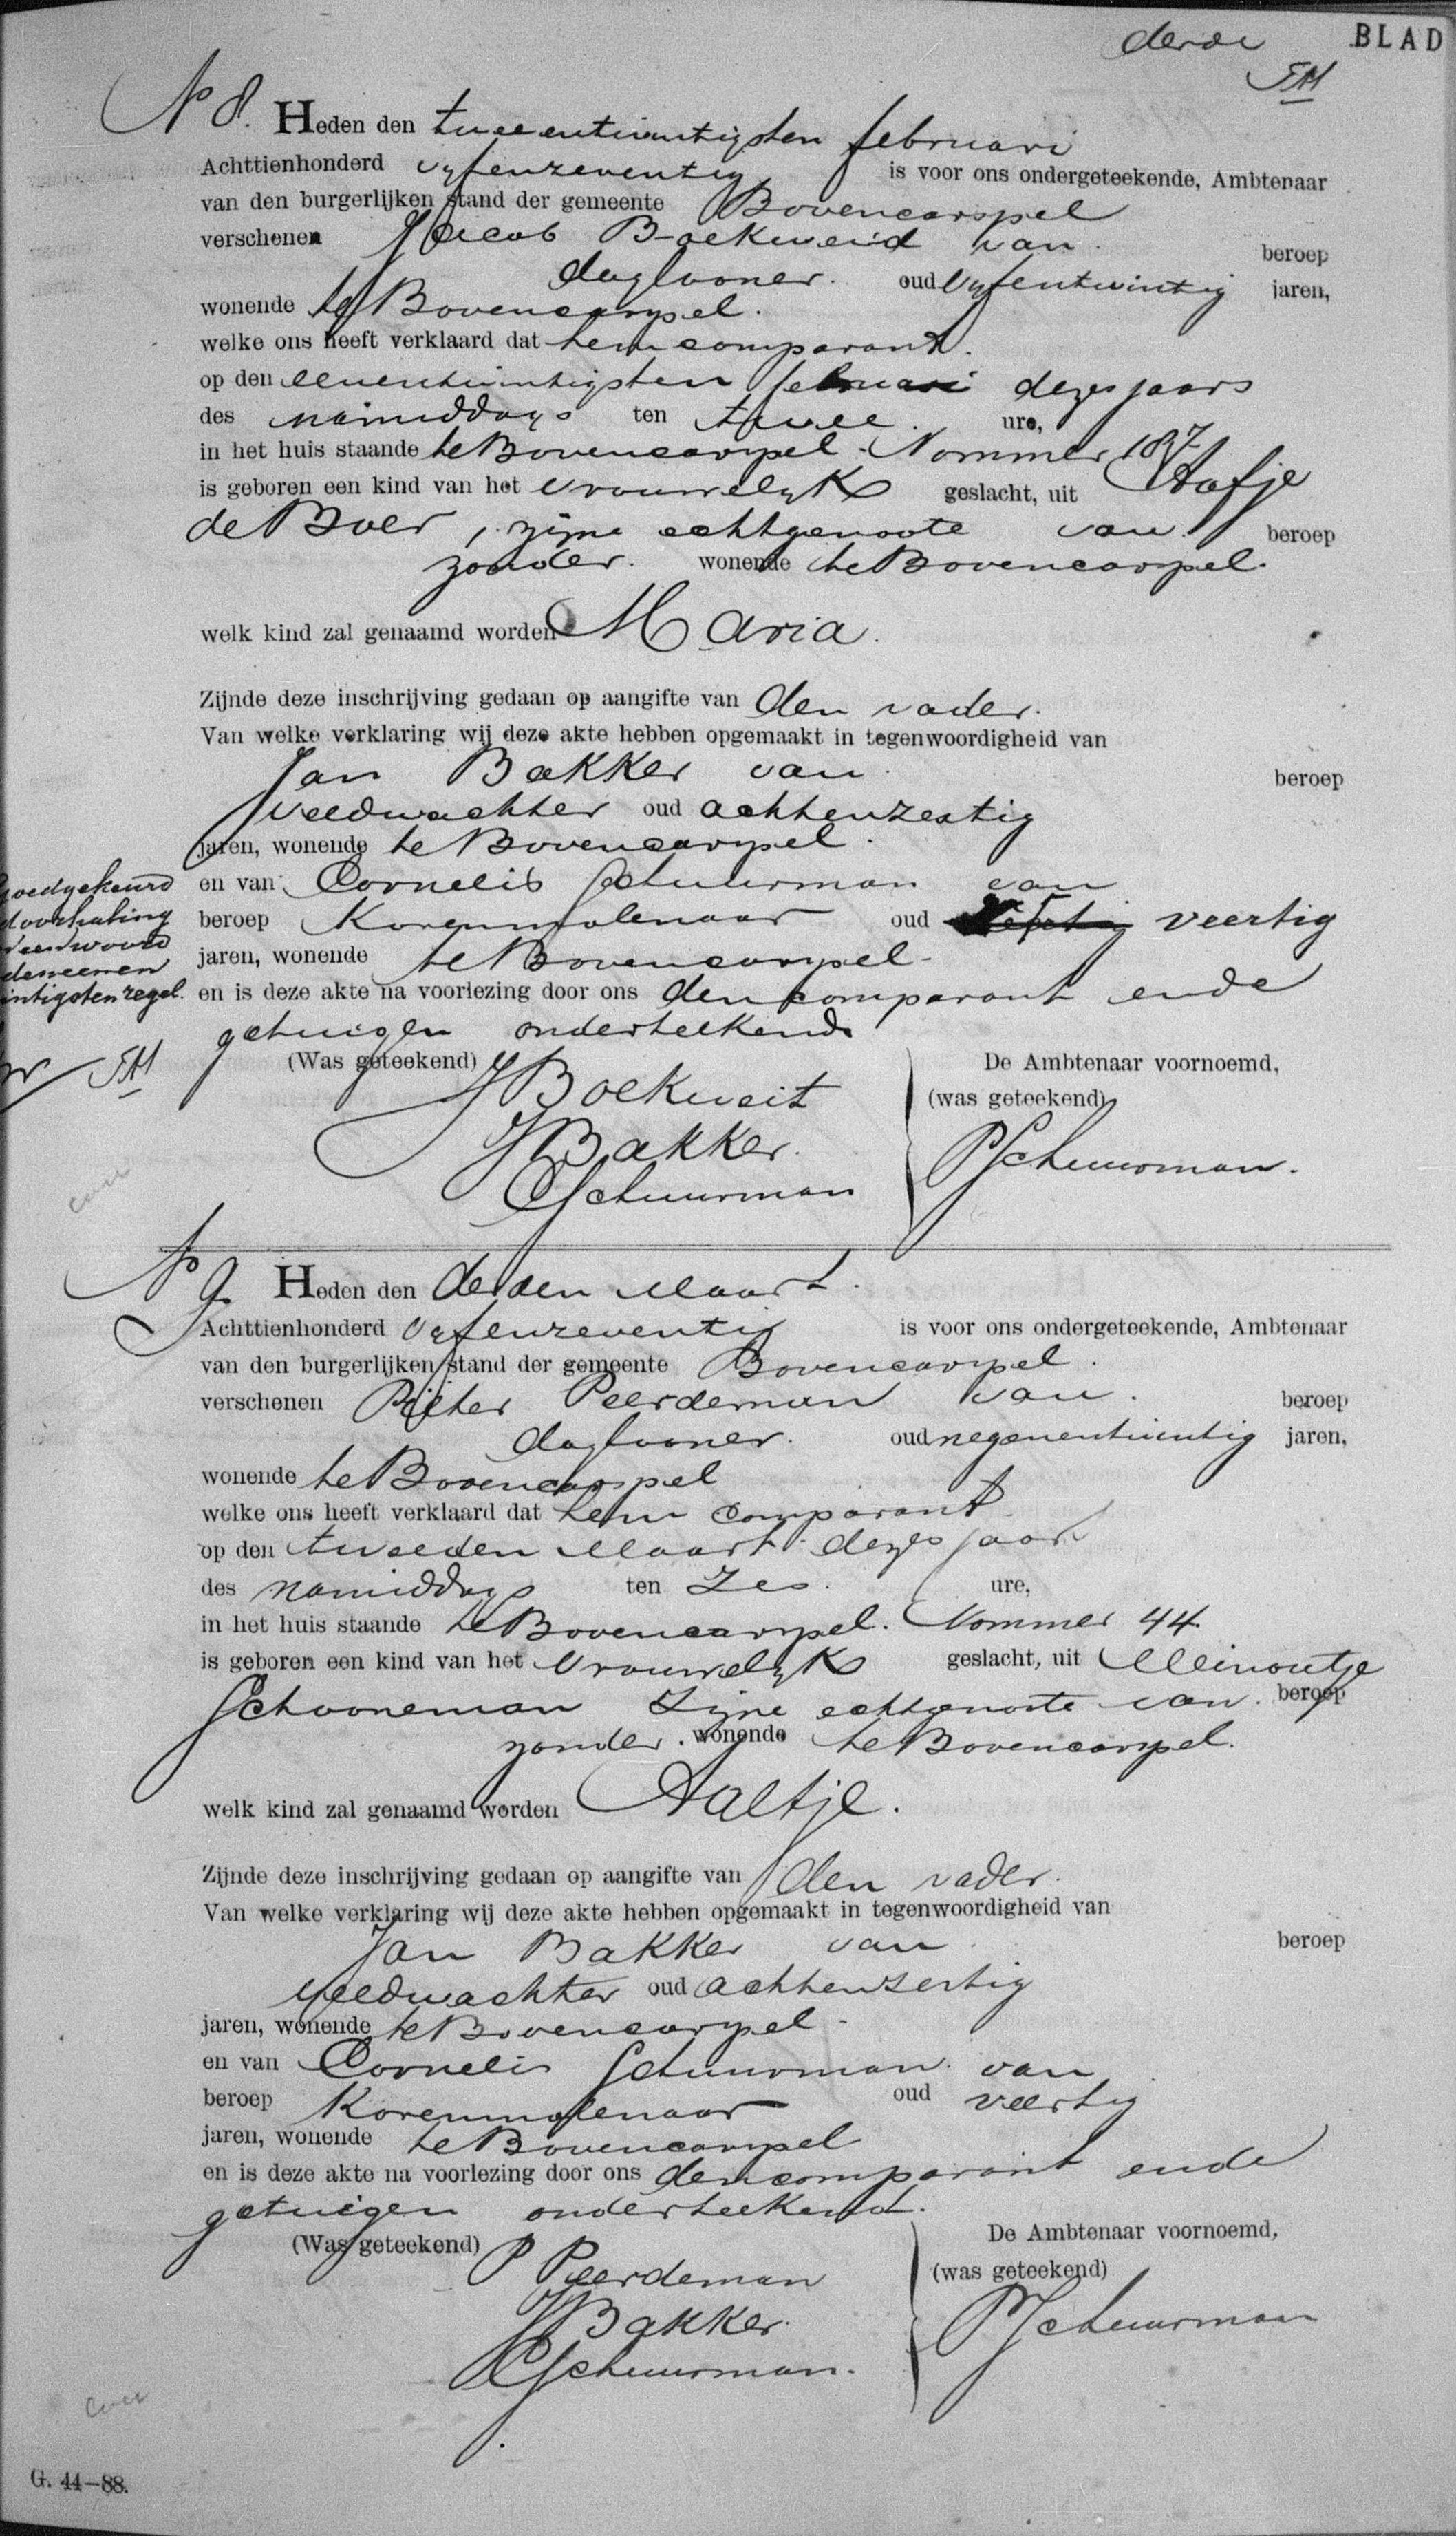 derde BLAD
No 8. Heden den tweeentwintigsten februari
Achttienhonderd vyfenzeventig is voor ons ondergeteekende, Ambtenaar
van den burgerlijken stand der gemeente Bovencarspel
verschenen Jacob Boekweid van beroep
daglooner. oud vyfentwintig jaren,
wonende te Bovencarspel.
welke ons heeft verklaard dat hem comparant.
op den eenentwintigsten februari dezes jaars
des namiddags ten twee ure,
in het huis staande te Bovencarspel. Nommer 187
is geboren een kind van het vrouwelyk geslacht, uit Aafje
de Boer, zijne echtgenoote van beroep
zonder. wonende te Bovencarspel.
welk kind zal genaamd worden Maria.
Zijnde deze inschrijving gedaan op aangifte van den vader.
Van welke verklaring wij deze akte hebben opgemaakt in tegenwoordigheid van
Jan Bakker van beroep
veldwachter oud achtenzestig
jaren, wonende te Bovencarspel.
en van Cornelis Schuurman van
beroep Korenmolenaar oud veertig
jaren, wonende te Bovencarspel
en is deze akte na voorlezing door ons den comparant en de
getuigen onderteekend
goedgekeurd
doorhaling
(Was geteekend) De Ambtenaar voornoemd,
J Boekweit (was geteekend)
J Bakker. P Schuurman.
C Schuurman
No 9. Heden den derden Maart.
Achttienhonderd vyfenzeventig is voor ons ondergeteekende, Ambtenaar
van den burgerlijken stand der gemeente Bovencarspel.
verschenen Pieter Peerdeman van beroep
daglooner. oud negenentwintig jaren,
wonende te Bovencarspel
welke ons heeft verklaard dat hem comparant
op den tweeden Maart dezes jaars
des namiddags ten Zes. ure,
in het huis staande te Bovencarspel. Nommer 44.
is geboren een kind van het vrouwelyk geslacht, uit Meinoutje
Schooneman Zijne echtgenoote van beroep
zonder. wonende te Bovencarspel.
welk kind zal genaamd worden Aaltje.
Zijnde deze inschrijving gedaan op aangifte van den vader.
Van welke verklaring wij deze akte hebben opgemaakt in tegenwoordigheid van
Jan Bakker van beroep
veldwachter oud achtenzestig
jaren, wonende te Bovencarspel.
en van Cornelis Schuurman van
beroep Korenmolenaar oud veertig
jaren, wonende te Bovencarspel
en is deze akte na voorlezing door ons den comparant en de
getuigen onderteekend.
(Was geteekend) De Ambtenaar voornoemd,
P Peerdeman (was geteekend)
J Bakker. P Schuurman
C Schuurman.
G. 44—88.